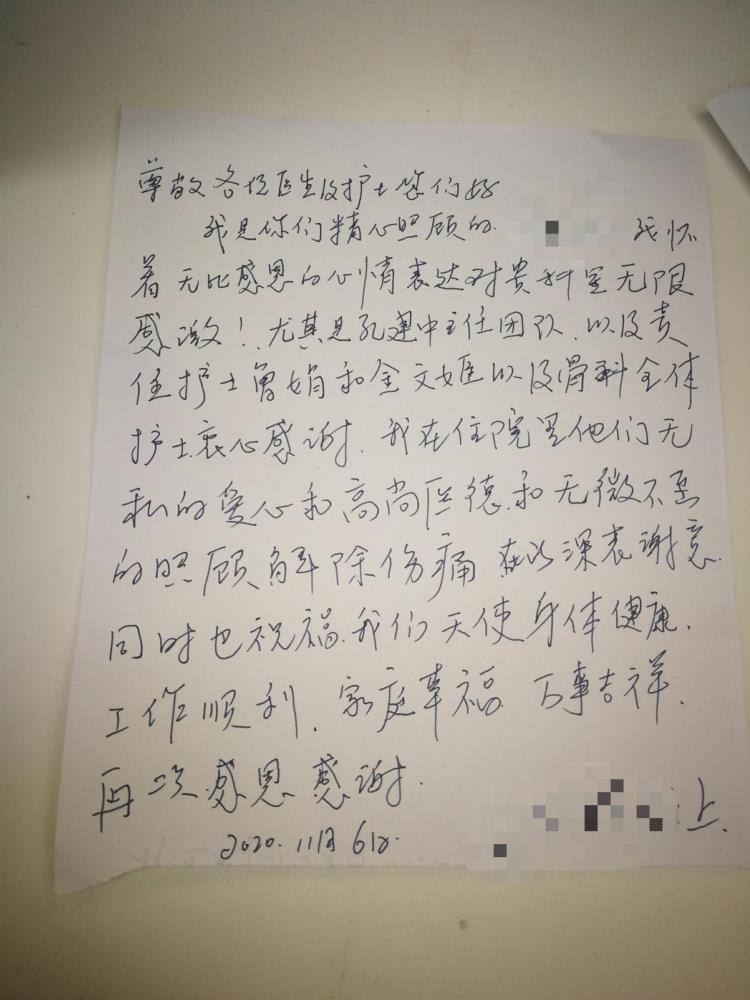 尊敬各位医生及护士您们好
我是你们精心照顾的 我怀
着无比感恩的心情表达对贵科室无限
感激！尤其是孔建中主任团队、以及责
任护士曾娟和金文姬以及骨科全体
护士衷心感谢、我在住院里他们无
私的爱心和高尚医德、和无微不至
的照顾解除伤痛 在此深表谢意
同时也祝福、我们天使身体健康、
工作顺利、家庭幸福 万事吉祥、
再次感恩感谢.
2020.11月6日.
上.